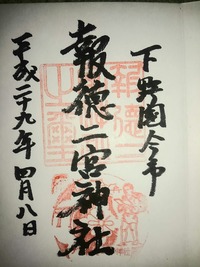 下野國今市
報徳二宮神社
平成二十九年四月八日